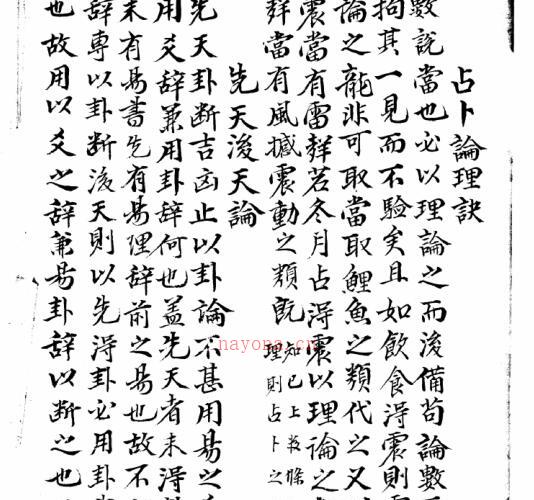 占卜論理訣
數說當也必以理論之而後備苟論數
拘其一見而不驗矣且如飲食淂震則
論之龍非可取當取鯉魚之類代之又
震當有雷聲若冬月占淂震以理論之
聲當有風撼震動之類既知已上
理則占卜之
先天後天論
先天卦斷吉凶止以卦論不甚用易之
用爻辭兼用卦辭何也盖先天者未淂
未有易書先有易理辭前之易也故不
辭專以卦斷後天則以先淂卦必用卦
也故用以爻之辭兼易卦辭以斷之也
nayona.cn